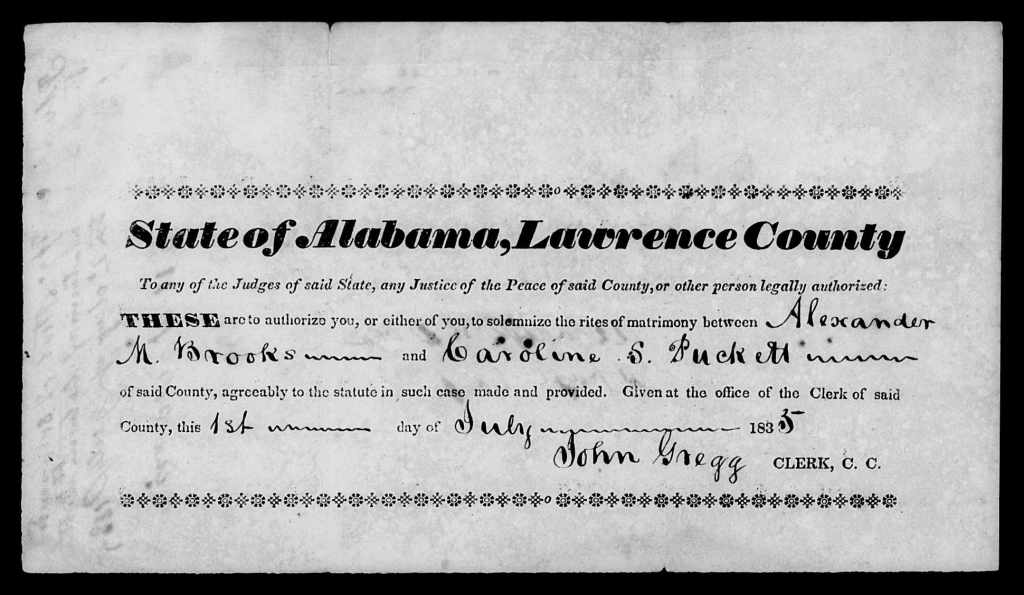 State of Alabama, Lawrence County
To any of the Judges of said State, any Justice of the Peace of said County, or other person legally authorized:
THESE are to authorize you, or either of you, to solemnize the rites of matrimony between Alexander
M. Brooks and Caroline S. Puckett
of said County, agreeably to the statute in such case made and provided. Given at the office of the Clerk of said
County, this 1st day of July 1835
John Gregg CLERK, C. C.